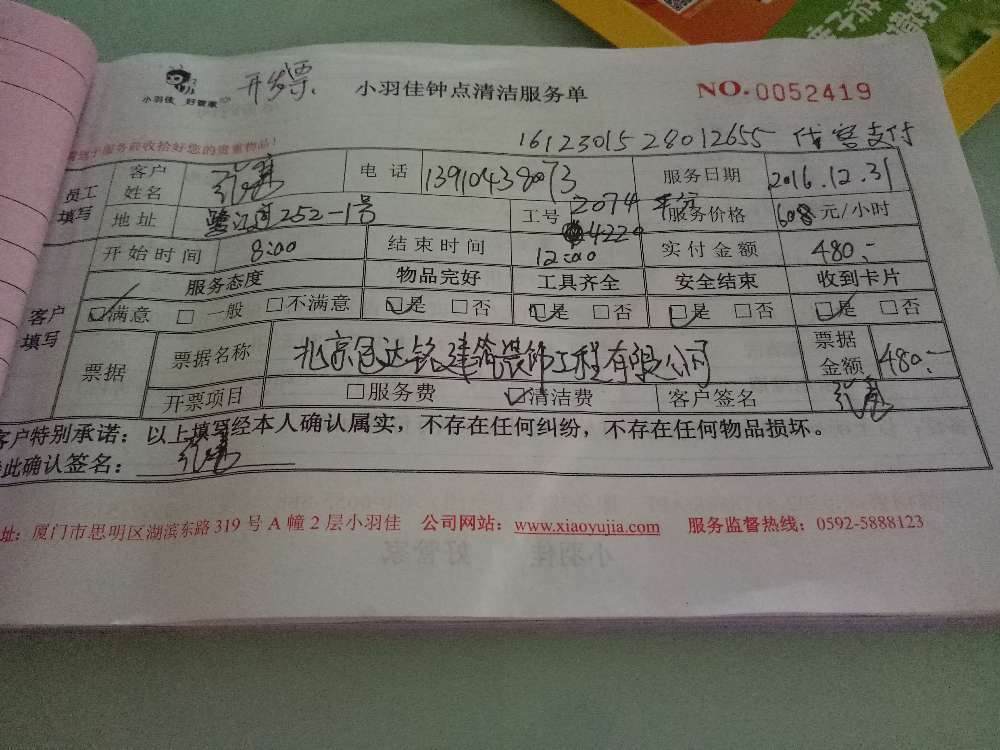 小羽佳 好管家
开发票
小羽佳钟点清洁服务单
NO.0052419
1612301528012655 代客支付
服务前收拾好您的贵重物品!
员工填写
客户姓名 电话 13910438073 服务日期 2016.12.31
地址 鹭江道252-1号 工号 2074 4220 服务价格 元/小时
开始时间 8:00 结束时间 12:00 实付金额 480:-
客户填写
服务态度 物品完好 工具齐全 安全结束 收到卡片
☑满意 □一般 □不满意 ☑是 □否 ☑是 □否 ☑是 □否 ☑是 □否
票据 票据名称 北京 达铭建筑装饰工程有限公司 票据金额 480:-
开票项目 □服务费 ☑清洁费 客户签名
客户特别承诺:以上填写经本人确认属实,不存在任何纠纷,不存在任何物品损坏。
此确认签名:
址:厦门市思明区湖滨东路319号A幢2层小羽佳 公司网站:www.xiaoyujia.com 服务监督热线:0592-5888123